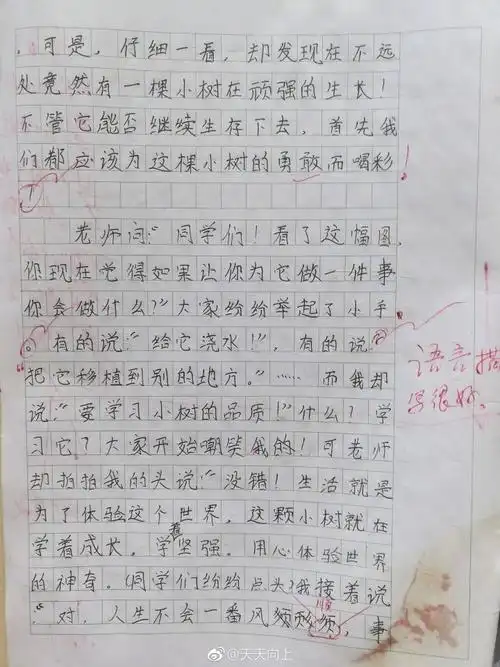 ，可是，仔细一看，却发现在不远
处竟然有一棵小树在顽强的生长！
不管它能否继续生存下去，首先我
们都应该为这棵小树的勇敢而喝彩！
老师问：“同学们！看了这幅图，
你现在觉得如果让你为它做一件事
你会做什么？”大家纷纷举起了小手
。有的说：“给它浇水！”，有的说：
“把它移植到别的地方。”……而我却
说：“要学习小树的品质！”什么？学
习它？大家开始嘲笑我的！可老师
却拍拍我的头说：“没错！生活就是
为了体验这个世界，这颗小树就在
学着成长，学着坚强。用心体验世界
的神奇。（同学们纷纷点头）我接着说
：“对，人生不会一番风顺，事
语言描
写很好。
@天天向上